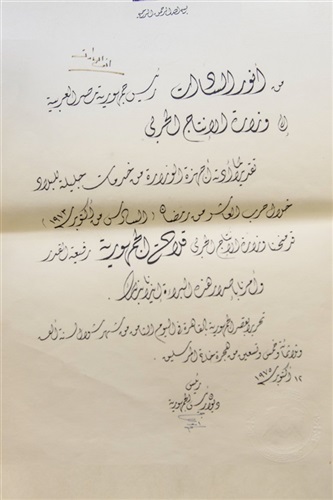 بسم الله الرحمن الرحيم
أنور السادات
من أنور السادات رئيس جمهورية مصر العربية
إلى وزارة الإنتاج الحربى
تقديرا لما أدته أجهزة الوزارة من خدمات جليلة للبلاد
خلال حرب العاشر من رمضان (السادس من أكتوبر ١٩٧٣)
قد منحنا وزارة الإنتاج الحربى قلادة الجمهورية رفيعة القدر
وأمرنا بإصدار هذه البراءة إيذانا بذلك
تحريرا بقصر الجمهورية بالقاهرة فى اليوم الثامن من شهر شوال سنة ألف
وثلاثمائة وخمس وتسعين من هجرة خاتم المرسلين
١٢ أكتوبر ١٩٧٥
رئيس
ديوان رئيس الجمهورية